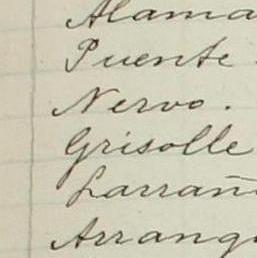 Alama
Puente
Nervo.
Grisolle
Larrañ
Arrang